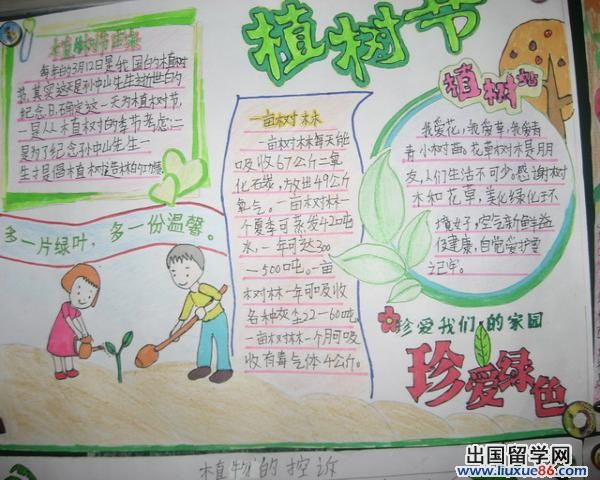 植树节
植树节由来
每年的3月12日是我国的植树
节,其实这是孙中山先生逝世日的
纪念日,确定这一天为植树节,
一是从植树的季节考虑;二
是为了纪念孙中山先生一
生
多一片绿叶,多一份温馨。
一亩树林
一亩树林每天能
吸收67公斤二氧
化石炭,放出49公斤
氧气。一亩树林一
个夏季可蒸发42吨
水,一年可达300
—500吨。一亩
树林一年可吸收
各种灰尘22—60吨,
一亩树林一个月可吸
收有毒气体4公斤。
植树
我爱花,我爱草,我爱青
青小树苗。花草树木是朋
友,人们生活不可少。感谢树
木和花草,美化绿化环
境好,空气新鲜益
促健康,自觉爱护要
记牢。
珍爱我们的家园
珍爱绿色
植物的控诉
出国留学网
www.liuxue86.com